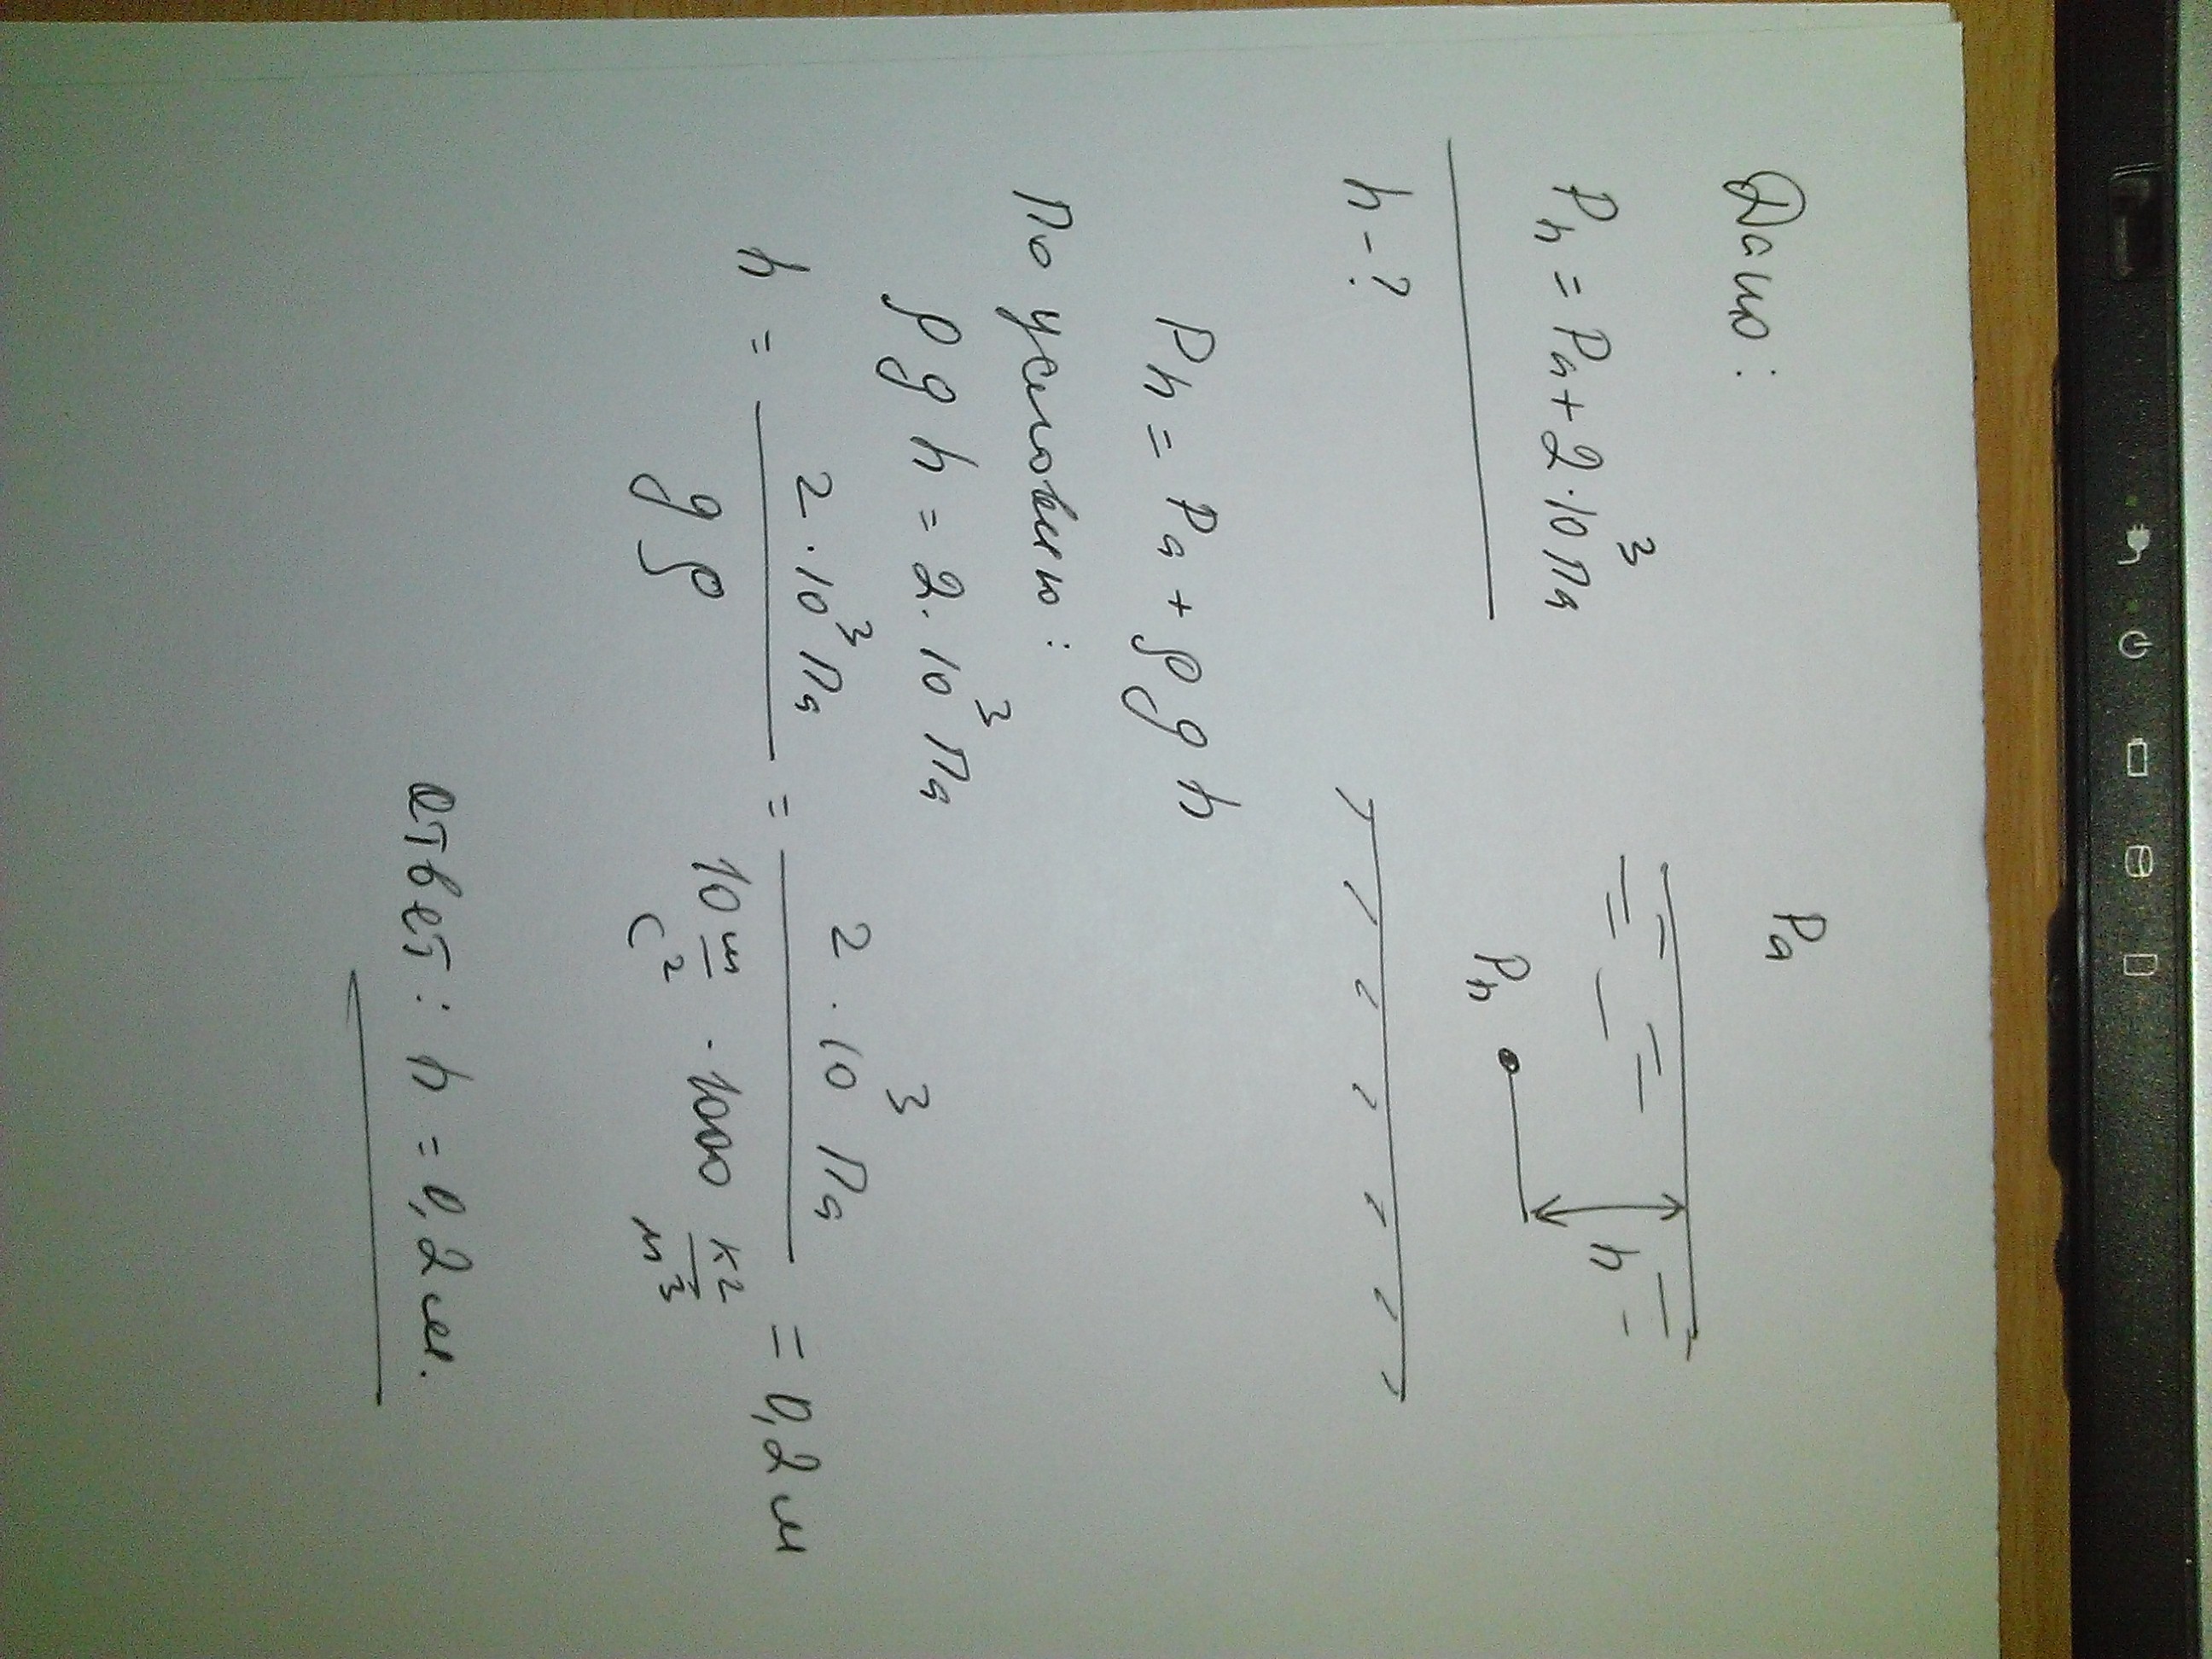 Дано:
Pₕ = Pₐ + 2·10³ Па
h - ?
Pₐ
Pₕ
h
Pₕ = Pₐ + ρ g h
По условию:
ρ g h = 2·10³ Па
h = 2·10³ Па / g ρ = 2·10³ Па / 10 м/с² · 1000 кг/м³ = 0,2 м
Ответ: h = 0,2 м.